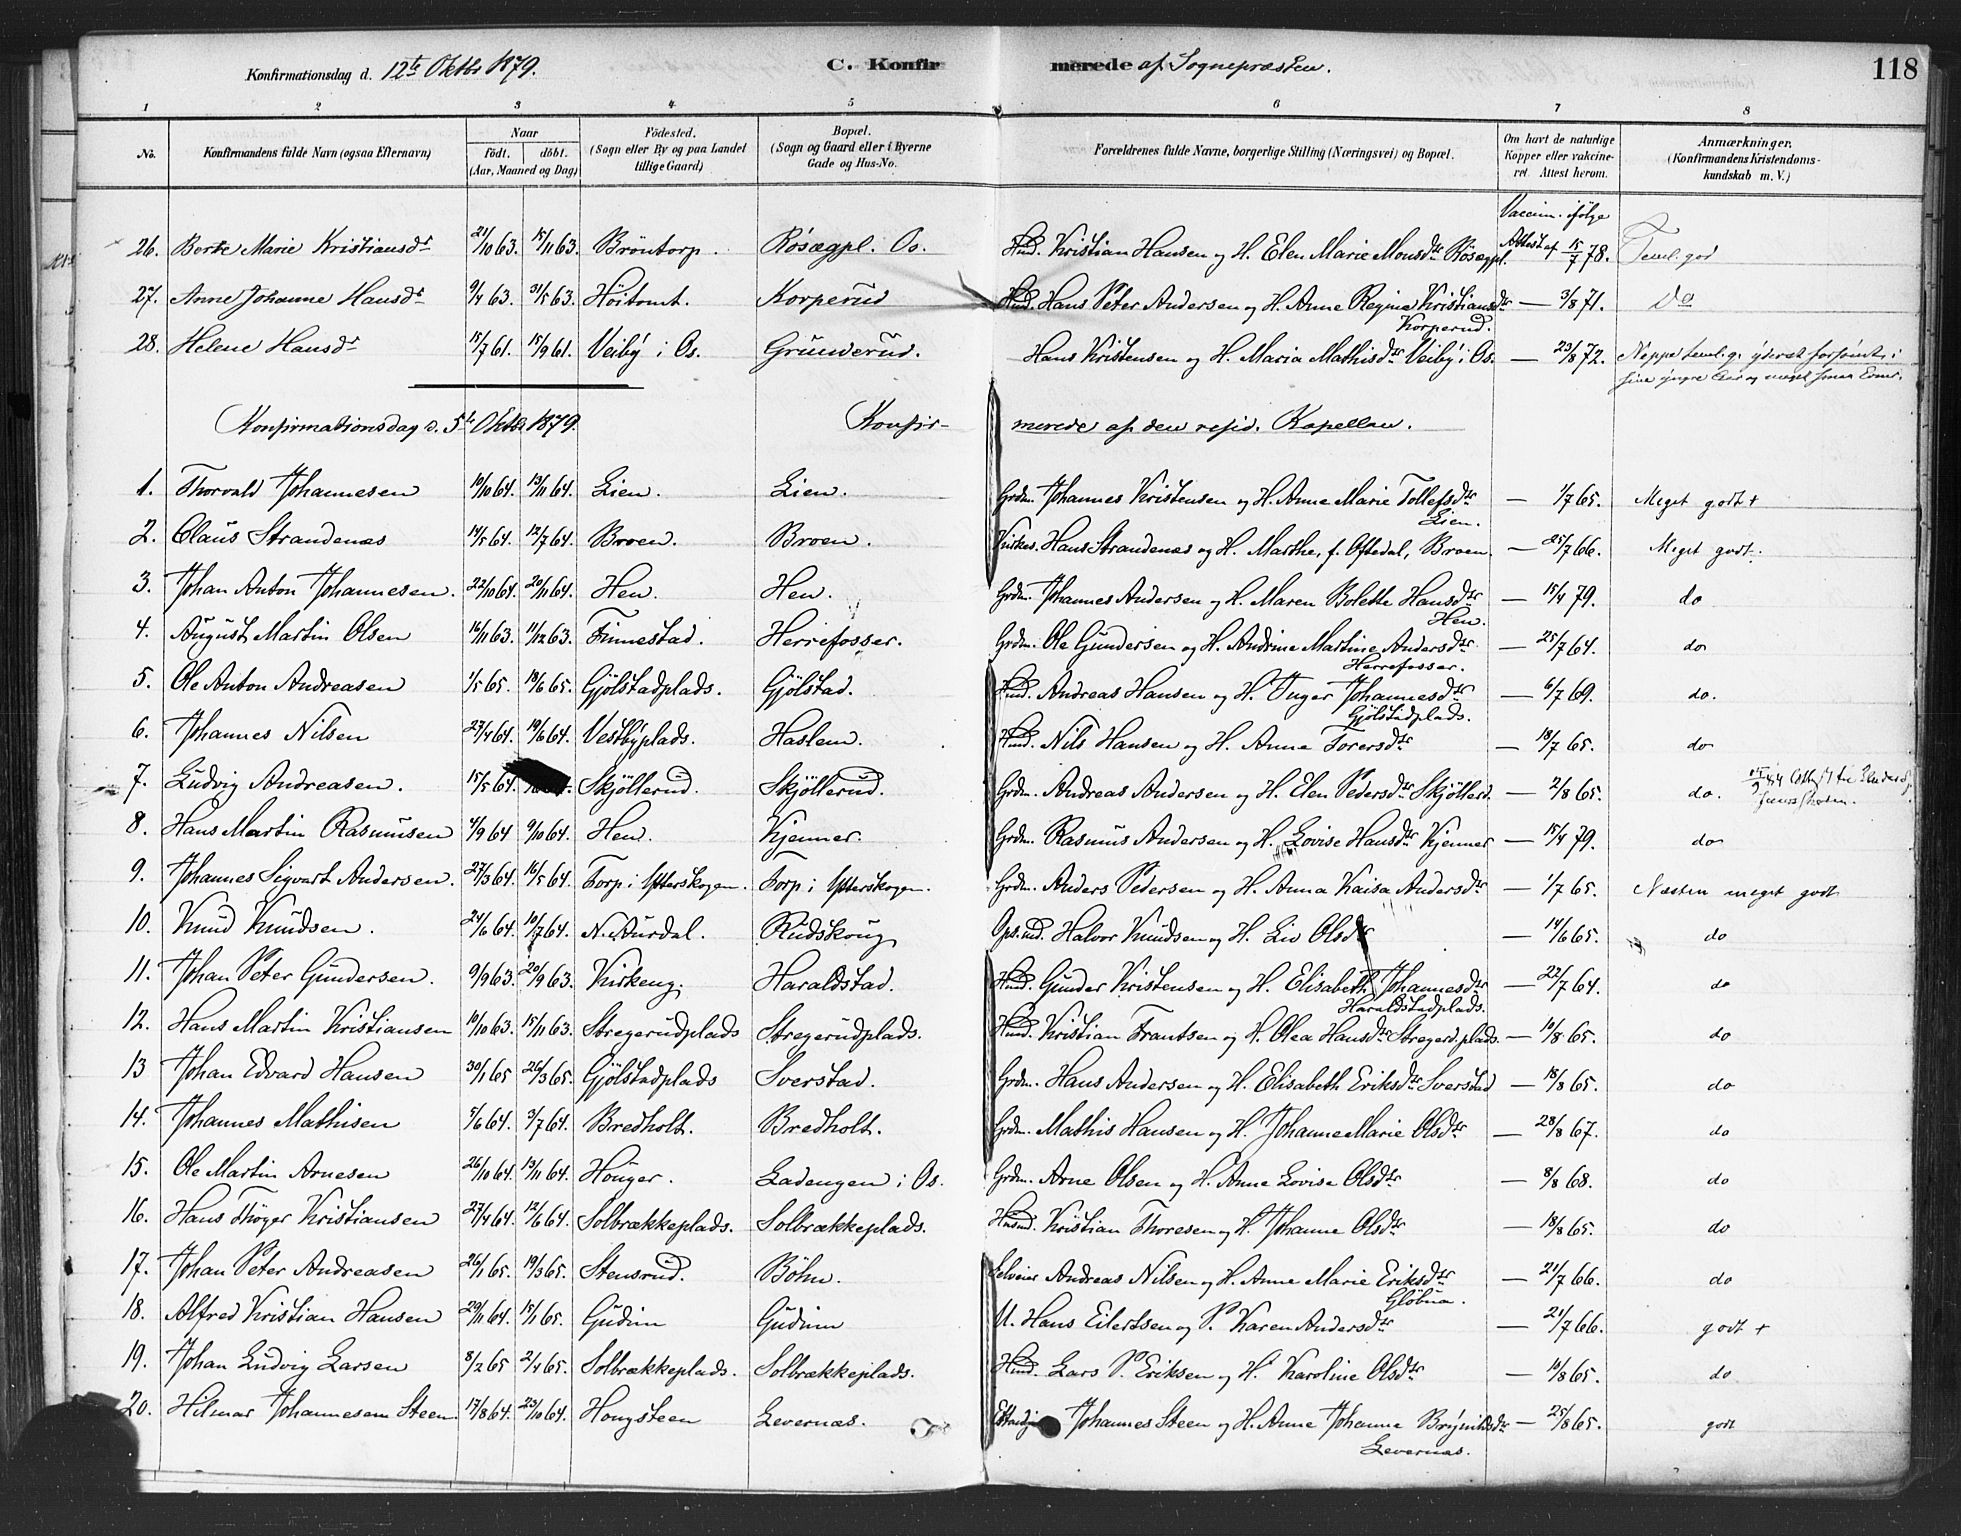 Konfirmationsdag d. 12te Oktbr 1879. C. Konfirmerede af Sognepræsten. 118
1 2 3 4 5 6 7 8
No. Konfirmandens fulde Navn (ogsaa Efternavn) Naar födt. döbt. (Aar, Maaned og Dag) Födested. (Sogn eller By og paa Landet tillige Gaard) Bopæl. (Sogn og Gaard eller i Byerne Gade og Hus-No. Forældrenes fulde Navne, borgerlige Stilling (Næringsvei) og Bopæl. Om havt de naturlige Kopper eller vakcineret. Attest herom. Anmærkninger. (Konfirmandens Kristendomskundskab m. V.)
26. Berte Marie Kristiansdr 21/10 63. 15/11 63. Bröntorp. Rösægpl. Os. Husmd. Kristian Hansen og H. Elen Marie Monsdtr Rösægpl. Vaccin. ifölge Attest af 15/7 78. Temel. god
27. Anne Johanne Hansdr 9/4 63. 31/5 63. Höitomt. Korperud Husmd. Hans Peter Andersen og H. Anne Regine Kristiansdtr Korperud. — 3/8 71. Do
28. Helene Hansdr 15/7 61. 15/9 61. Veibÿ i Os. Grünnerud. Hans Kristensen og H. Maria Mathisdtr Veibÿ i Os. — 23/8 72. Neppe temelig, yderst forsömt i sine yngre Aar og meget smaa Evner.
Konfirmationsdag d. 5te Oktbr 1879. Konfirmerede af den resid. Kapellan.
1. Thorvald Johannesen 10/10 64. 13/11 64. Lien. Lien. Grdm. Johannes Kristensen og H. Anne Marie Tollefsdtr Lien. — 1/7 65. Meget godt +
2. Claus Strandenæs 14/5 64. 12/7 64. Broen. Broen. Kirkes. Hans Strandenæs og H. Marthe, f. Oftedal, Broen. — 25/7 66. Meget godt.
3. Johan Anton Johannesen. 22/10 64. 20/11 64. Hen. Hen. Grdm. Johannes Andersen og H. Maren Bolette Hansdtr Hen. — 15/4 79. do
4. August Martin Olsen 16/11 63. 11/12 63. Finnestad. Herrefosser. Grdm. Ole Gundersen og H. Andrine Martine Andersdtr Herrefosser. — 25/7 64. do
5. Ole Anton Andreasen 1/5 65. 18/6 65. Gjölstadplads. Gjölstad. Husmd. Andreas Hansen og H. Inger Johannesdtr Gjölstadplads. — 6/7 69. do.
6. Johannes Nilsen 27/4 64. 19/6 64. Vestbÿplads. Haslem. Husmd. Nils Hansen og H. Anne Torersdtr — 18/7 65. do
7. Ludvig Andreasen. 15/5 64. Skjöllerud. Skjöllerud. Grdm. Andreas Andersen og H. Elen Pedersdtr Skjöllerd. — 2/8 65. do.
8. Hans Martin Rasmusen 4/9 64 9/10 64. Hen. Kjenner. Grdm. Rasmus Andersen og H. Lovise Hansdtr Kjenner — 15/4 79. do
9. Johannes Sigvart Andersen. 27/3 64. 16/5 64. Torp i Ytterskogen. Torp i Ytterskogen. Grdm. Anders Pedersen og H. Anna Kaisa Andersdtr — 1/7 65. Næsten meget godt
10. Knud Knudsen. 24/6 64. 10/7 64. N. Aurdal. Rudskoug Ops.md. Halvor Knudsen og H. Liv Olsdtr — 14/6 65. do
11. Johan Peter Gundersen. 9/9 63. 20/9 63. Kirkeng. Haraldstad. Husmd. Gunder Kristensen og H. Elisabeth Johannesdtr Haraldstadplads. — 22/7 64. do
12. Hans Martin Kristiansen 10/10 63. 15/11 63. Stregerudplads Stregerudplads. Husmd. Kristian Frantsen og H. Olea Hansdtr Stregerd.plads. — 10/8 65. do
13 Johan Edvard Hansen 30/1 65 26/3 65. Gjölstadplads Sverstad. Grdm. Hans Andersen og H. Elisabeth Eriksdtr Sverstad — 18/8 65. do
14. Johannes Mathisen 7/6 64. 3/7 64. Bredholt. Bredholt. Grdm. Mathis Hansen og H. Johanne Marie Olsdtr — 28/8 67. do
15. Ole Martin Arnesen 26/10 64. 13/11 64. Höuger. Ladengen i Os. Grdm. Arne Olsen og H. Anne Lovise Olsdtr — 8/8 68. do
16. Hans Thöger Kristiansen 27/4 64. 12/6 64. Solbrækkeplads. Solbrækkeplads. Husmd. Kristian Thoresen og H. Johanne Olsdtr — 18/8 65. do
17. Johan Peter Andreasen 26/1 65. 19/3 65. Stensrud. Böhn. Selveier Andreas Nilsen og H. Anne Marie Eriksdtr Glöbua. — 21/7 66. do
18. Alfred Kristian Hansen 20/11 64. 15/1 65. Gudim Gudim U. Hans Eilertsen og P. Karen Andersdtr — 21/7 66. godt +
19. Johan Ludvig Larsen 8/2 65 2/4 65. Solbrækkeplads. Solbrækkeplads. Husmd. Lars P. Eriksen og H. Karoline Olsdtr — 10/8 65. do
20. Hilmar Johannesen Steen. 17/8 64. 23/10 64. Hougsteen Levernæs. Johannes Steen og H. Anne Johanne Brynildsdtr Levernæs. — 25/8 65. godt